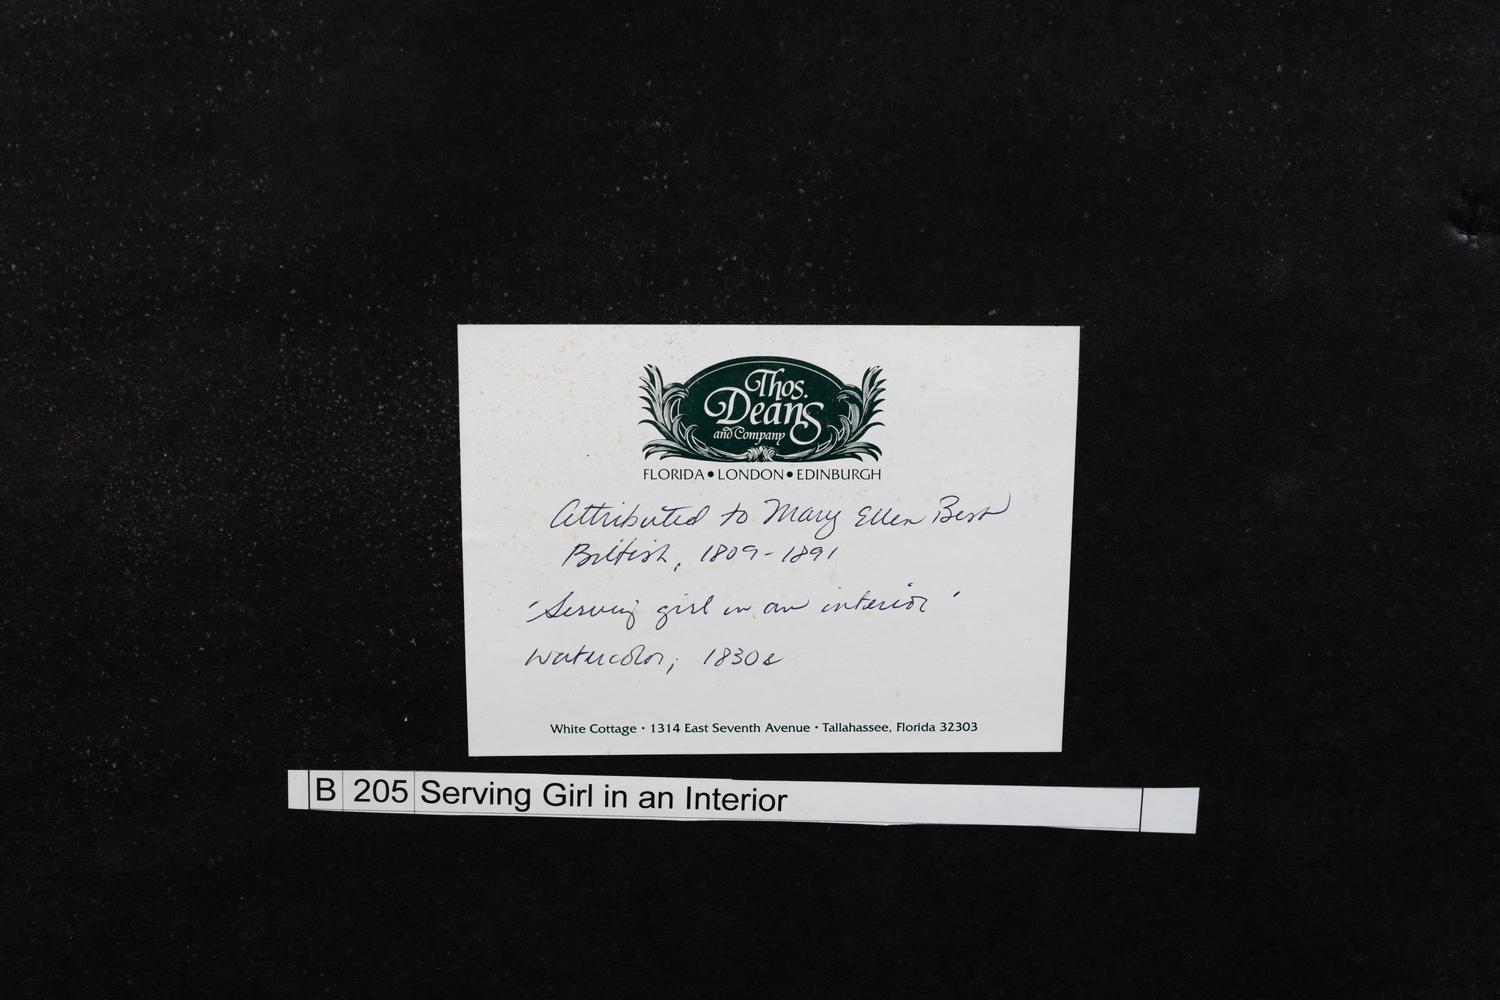 Thos.
Deans
and Company
FLORIDA • LONDON • EDINBURGH
Attributed to Mary Ellen Best
British, 1809-1891
'Serving girl in an interior'
Watercolor, 1830s
White Cottage • 1314 East Seventh Avenue • Tallahassee, Florida 32303
B 205 Serving Girl in an Interior